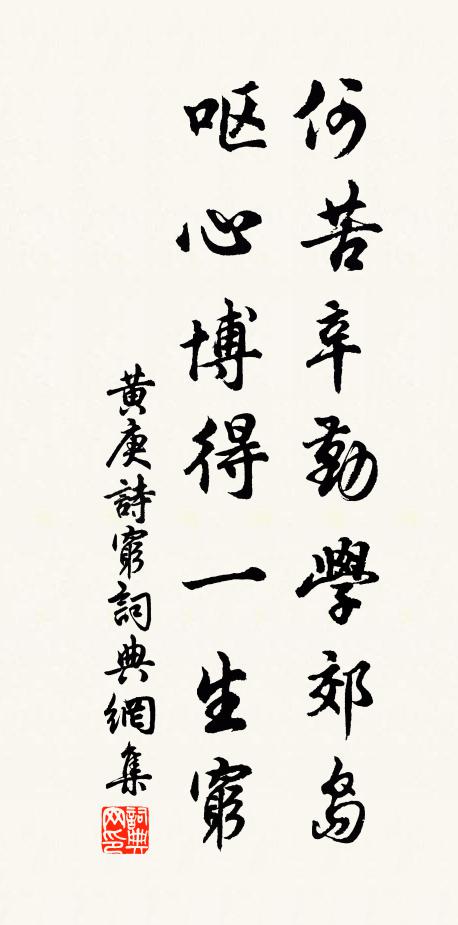 何苦辛勤學郊島
呕心博得一生窮
黄庚詩窮詞典網集
詞典网印